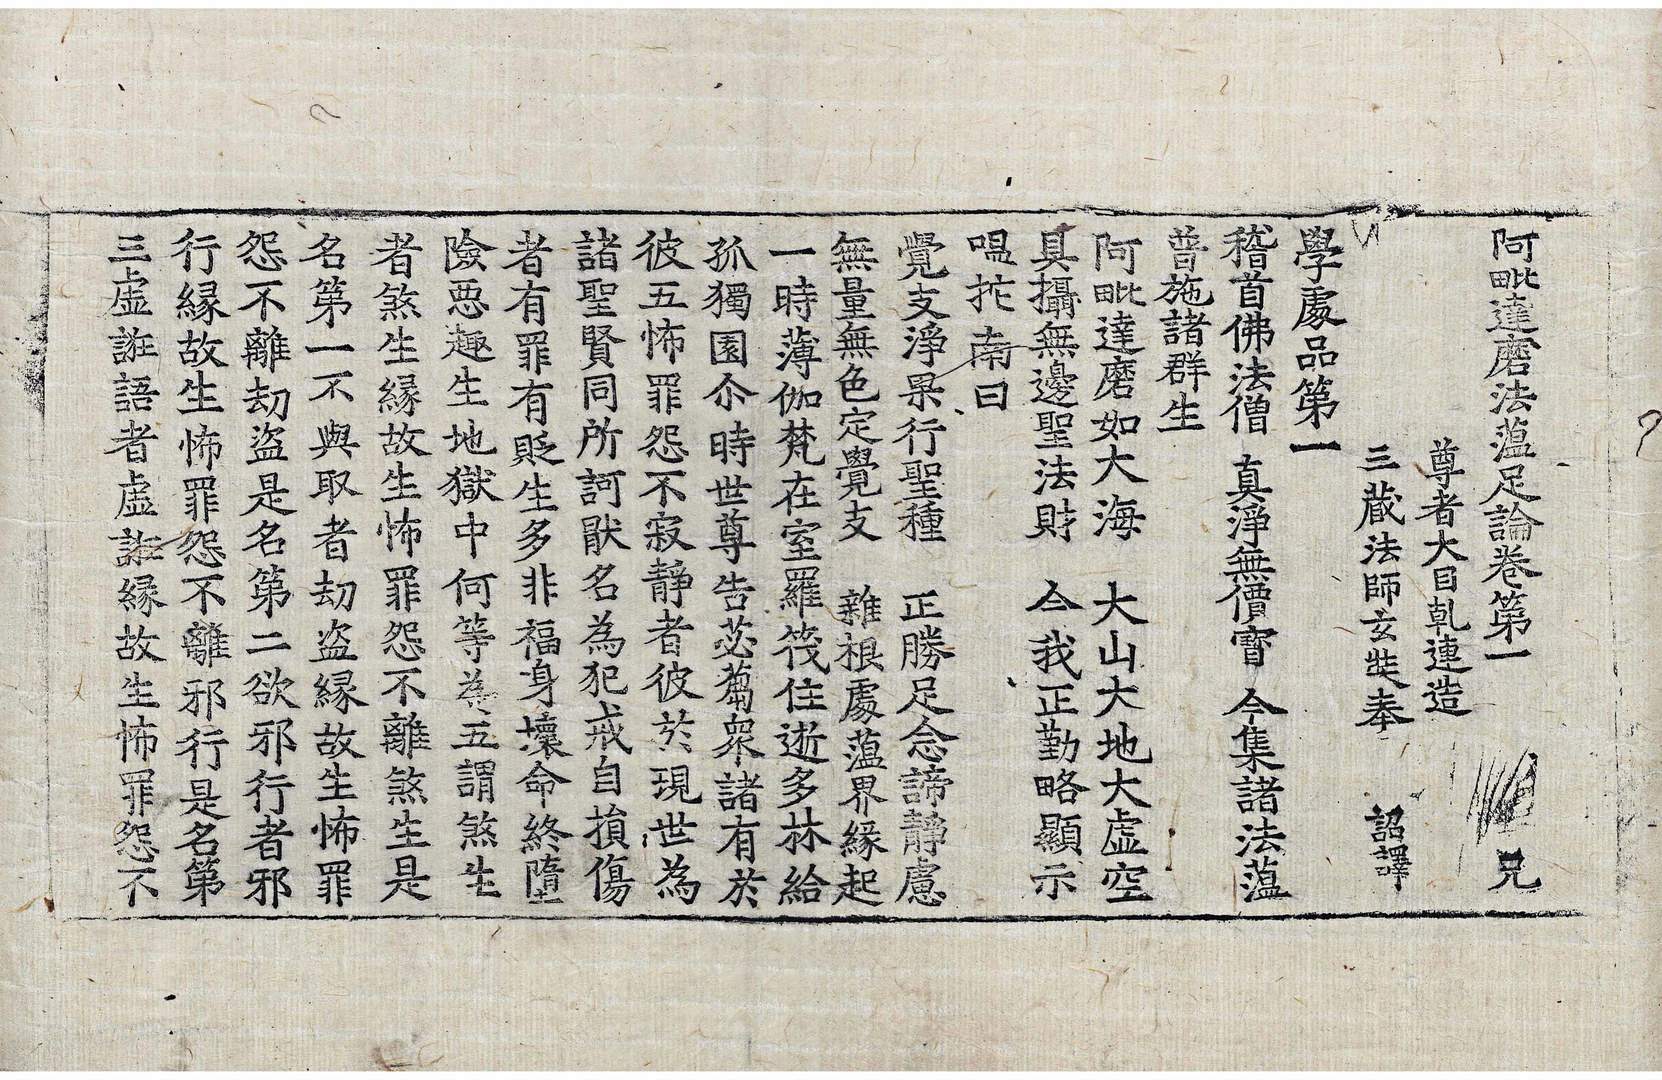 阿毗達磨法蕰足論卷第一 兄
尊者大目乹連造
三蔵法師玄奘奉 詔譯
學處品第一
稽首佛法僧 真淨無價寳 今集諸法蕰
普施諸群生
阿毗達磨如大海 大山大地大虚空
具攝無邊聖法財 今我正勤略顯示
嗢拕南曰
覺支淨果行聖種 正勝足念諦静慮
無量無色定覺支 雜根處蕰界縁起
一時薄伽梵在室羅筏住逝多林給
孤獨園尒時世尊告苾蒭衆諸有於
彼五怖罪怨不寂静者彼於現世為
諸聖賢同所訶猒名為犯戒自損傷
者有罪有貶生多非福身壞命終墮
險惡趣生地獄中何等為五謂煞生
者煞生縁故生怖罪怨不離煞生是
名第一不與取者劫盗縁故生怖罪
怨不離劫盗是名第二欲邪行者邪
行縁故生怖罪怨不離邪行是名第
三虚誑語者虚誑縁故生怖罪怨不